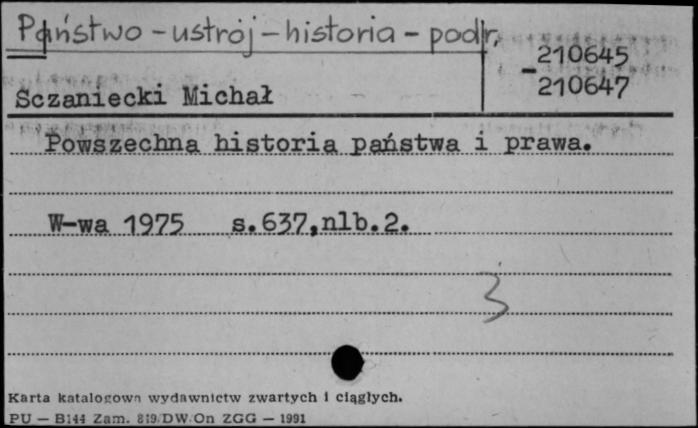 Państwo - ustrój - historia - podr.
210645
-210647
Sczaniecki Michał
Powszechna historia państwa i prawa.
W-wa 1975 s.637,nlb.2.
3
Karta katalogowa wydawnictw zwartych i ciągłych.
PU — B144 Zam. 819/DW/On ZGG — 1991